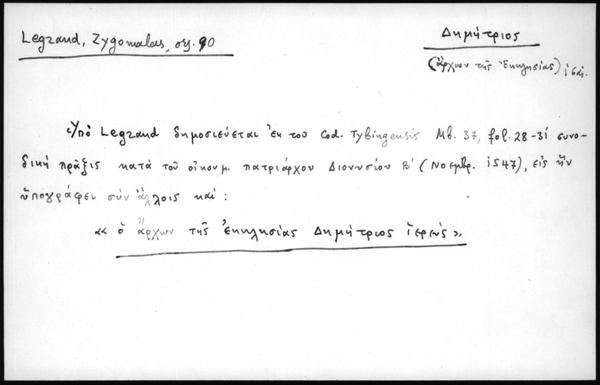 Legrand, Zygomalas, σελ. 90
Δημήτριος
(ἄρχων τῆς Ἐκκλησίας)
Ὑπὸ Legrand δημοσιεύεται ἐκ τοῦ Cod. Tybingensis Mb. 37, fol. 28-31 συνο-
δική πρᾶξις κατὰ τοῦ οἰκουμ. πατριάρχου Διονυσίου Β' (Νοεμβρ. 1547), εἰς ἣν
ὑπογράφει σὺν ἄλλοις καί:
«ὁ ἄρχων τῆς Ἐκκλησίας Δημήτριος ἱερεύς».